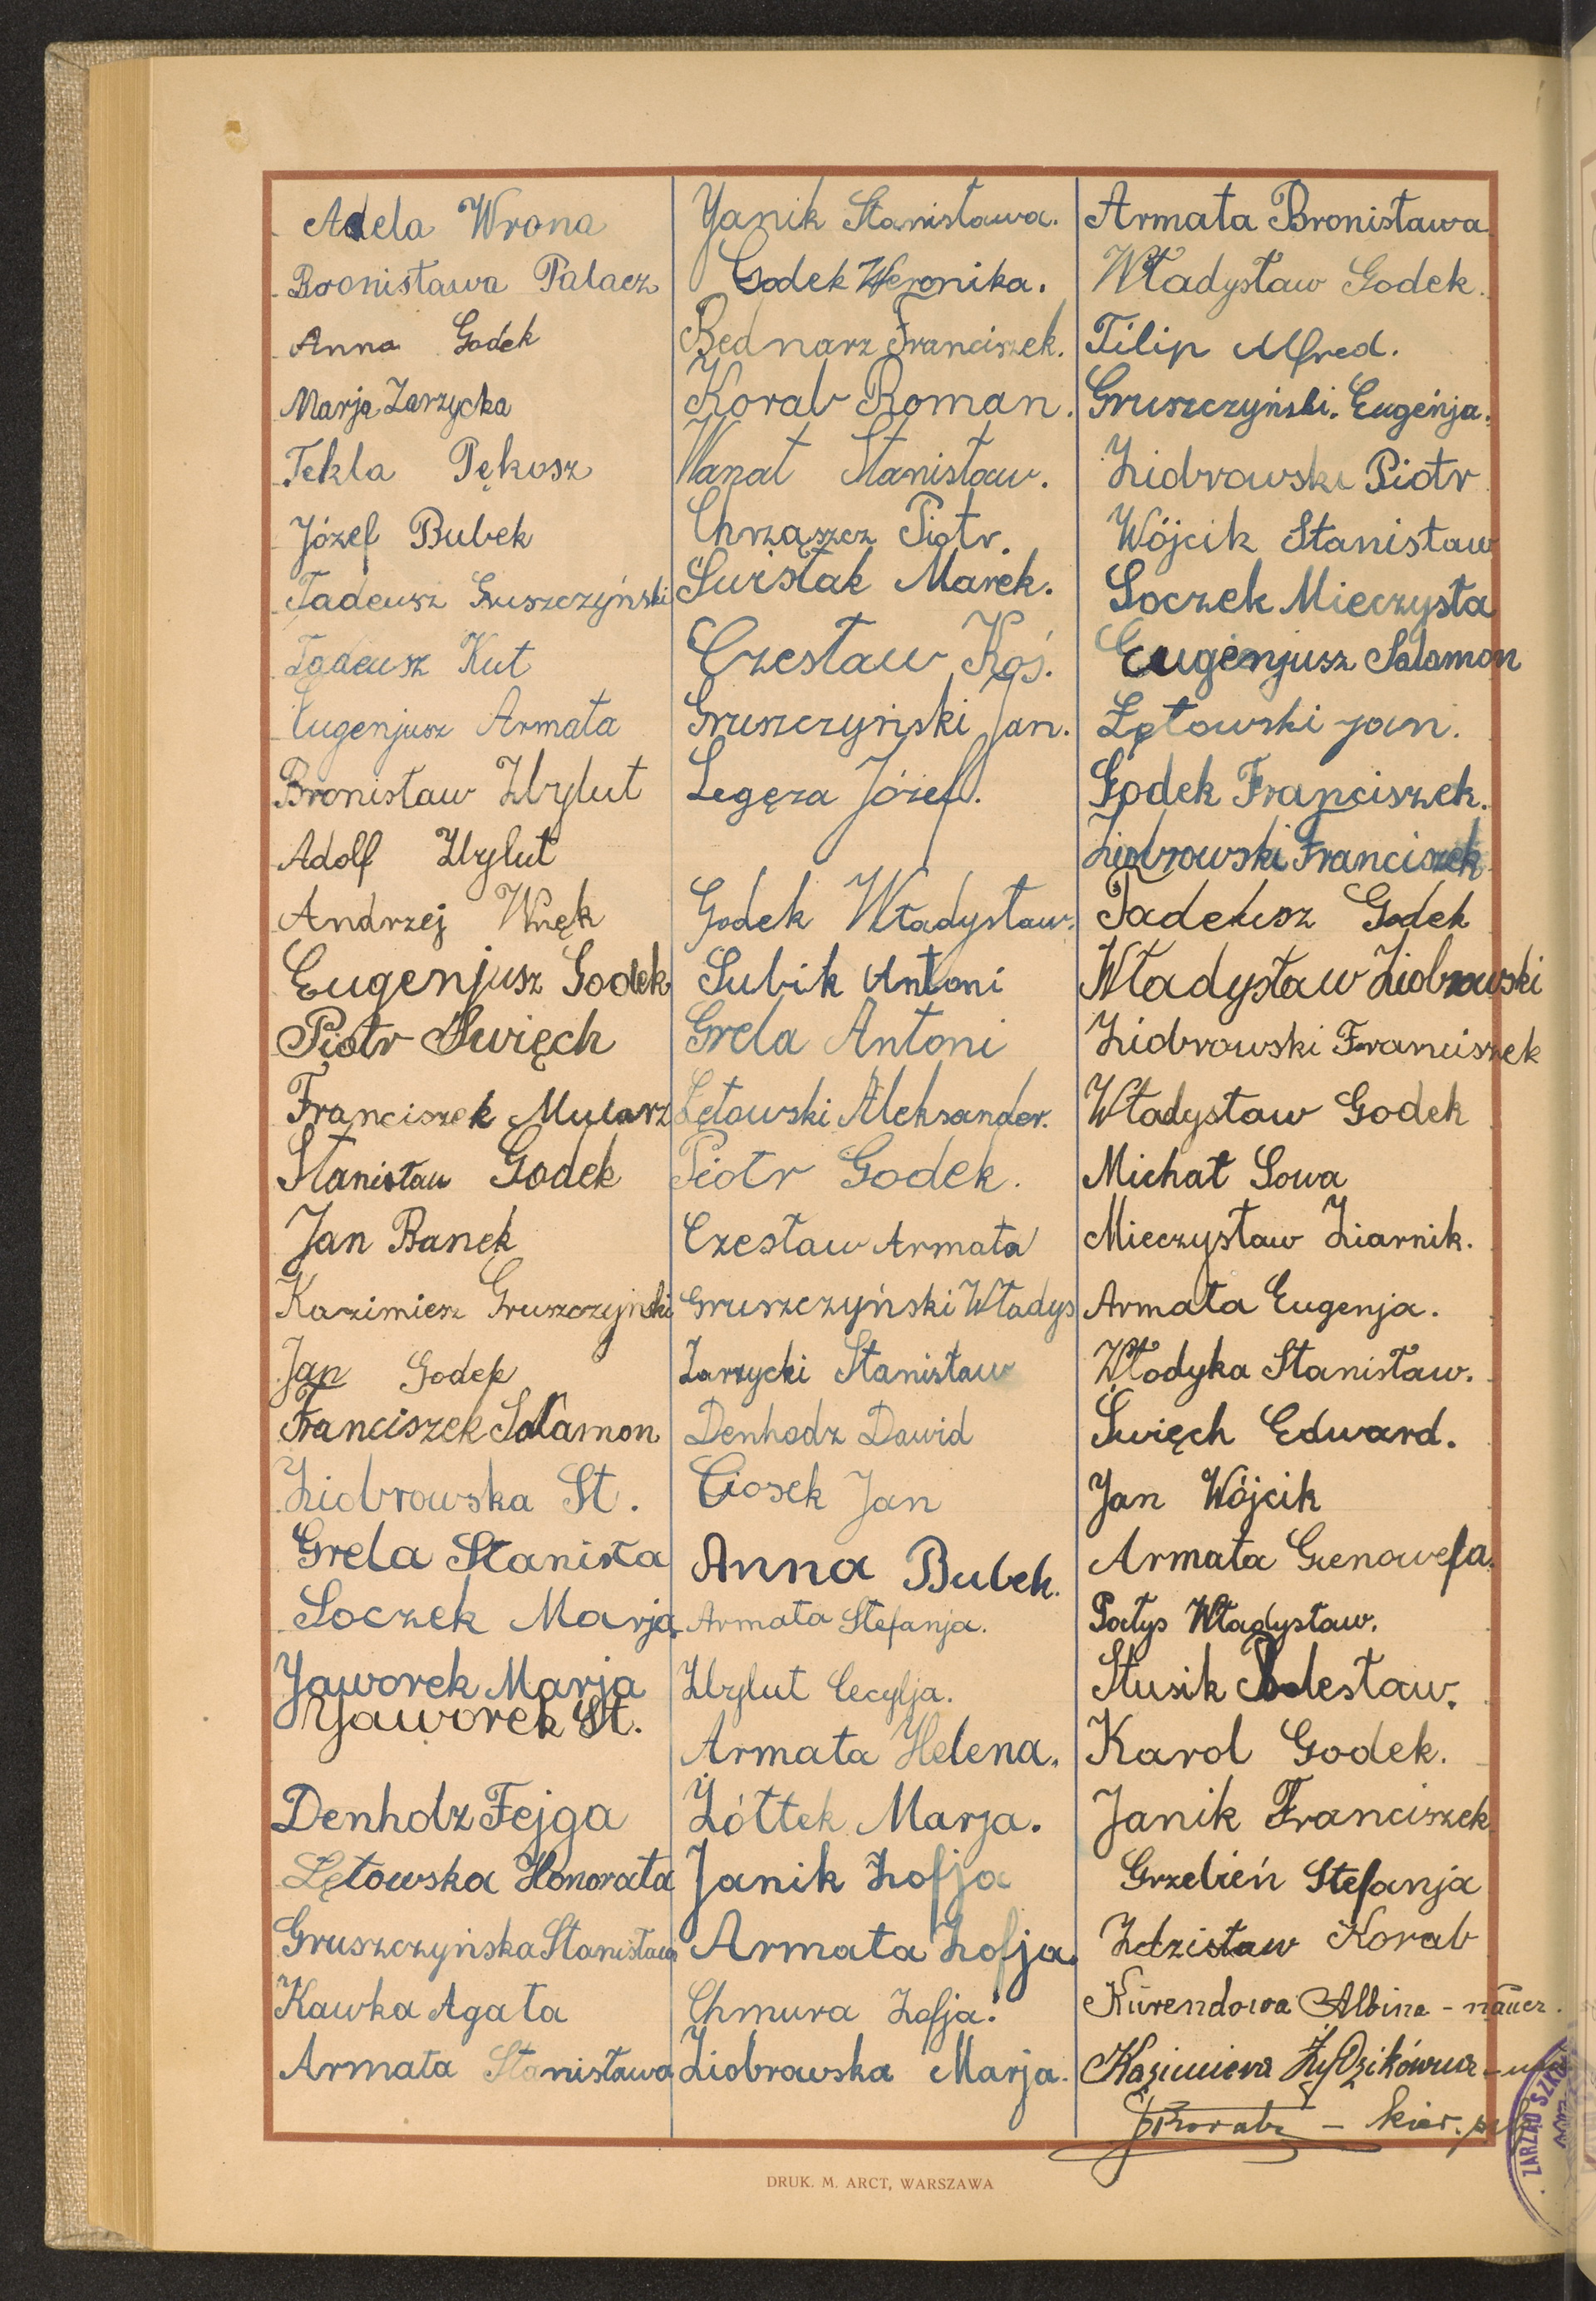 Adela Wrona
Bronisława Pałacz
Anna Godek
Marja Zarzycka
Tekla Pękosz
Józef Bubek
Tadeusz Gruszczyński
Tadeusz Kut
Eugenjusz Armata
Bronisław Zbylut
Adolf Zbylut
Andrzej Wnęk
Eugenjusz Godek
Piotr Święch
Franciszek Mularz
Stanisław Godek
Jan Banek
Kazimierz Gruszczyński
Jan Godek
Franciszek Salamon
Ziobrowska St.
Grela Stanisła
Soczek Marja
Jaworek Marja
Jaworek St.
Denholz Fejga
Łętowska Honorata
Gruszczyńska Stanisława
Kawka Agata
Armata Stanisława
Janik Stanisława.
Godek Weronika.
Bednarz Franciszek.
Korab Roman.
Wanat Stanisław.
Chrząszcz Piotr.
Świstak Marek.
Czesław Koś.
Gruszczyński Jan.
Legęza Józef.
Godek Władysław.
Subik Antoni
Grela Antoni
Łętowski Aleksander.
Piotr Godek.
Czesław Armata
Gruszczyński Władys
Zarzycki Stanisław
Denhodz Dawid
Ciosek Jan
Anna Bubek.
Armata Stefanja.
Zbylut Cecylja.
Armata Helena.
Żółtek Marja.
Janik Zofja
Armata Zofja.
Chmura Zofja.
Ziobrowska Marja.
Armata Bronisława
Władysław Godek.
Filip Alfred.
Gruszczyński. Eugenja.
Ziobrowski Piotr
Wójcik Stanisław
Soczek Mieczysła
Eugenjusz Salamon
Łętowski Jan.
Godek Franciszek.
Ziobrowski Franciszek
Tadeusz Godek
Władysław Ziobrowski
Ziobrowski Franciszek
Władysław Godek
Michał Sowa
Mieczysław Ziarnik.
Armata Eugenja.
Włodyka Stanisław.
Święch Edward.
Jan Wójcik
Armata Genowefa.
Patys Władysław.
Stusik Bolesław.
Karol Godek.
Janik Franciszek
Grzebień Stefanja
Zdzisław Korab
Kurendowa Albina - naucz.
Kazimiera Żydzikówna -
Korab - kier.
ZARZĄD SZKO
DRUK. M. ARCT, WARSZAWA